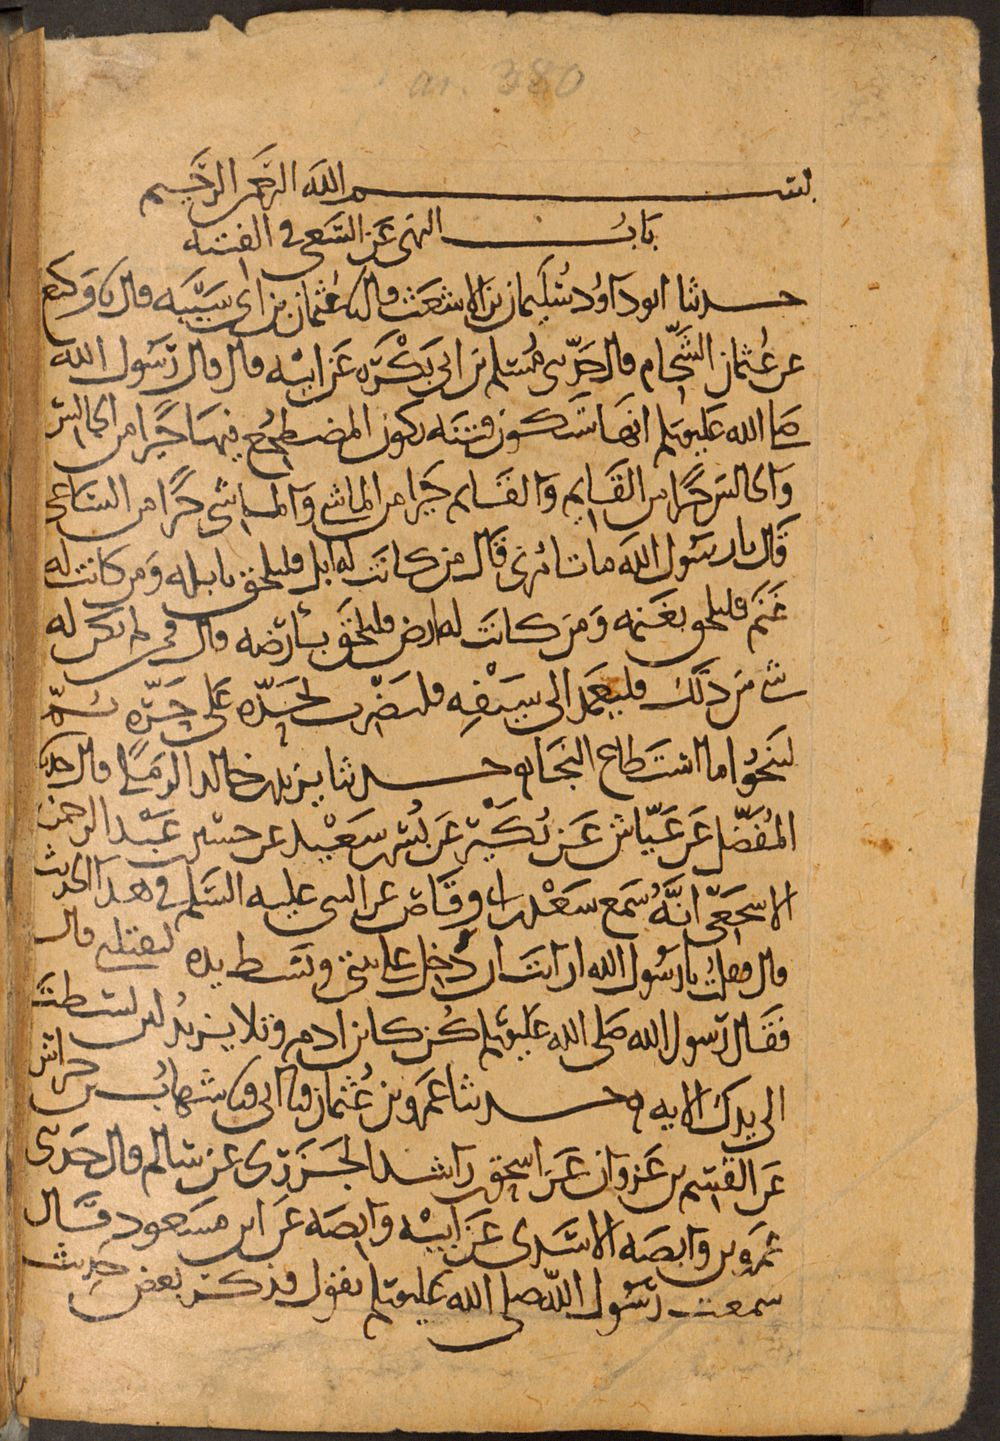 ar. 380
بسم الله الرحمن الرحيم
باب النهي عن السعي في الفتنه
حدثنا ابو داوُد سُليمان بن الاشعَث قال نا عُثمان بن ابي شيبَه قال نا وَكيع
عن عُثمان الشحّام قال حَدّثني مُسلم بن ابي بَكْرَه عن ابيْه قال قال رَسُول الله
صلى الله عليه وسلم انها سَتكون فتنَه يكون المضطجع فيهَا خيرًا من الجالس
وَالجالس خيرًا من القَايم وَالقَايم خيرا من الماشي وَالماشي خيرًا من السَاعي
قَال يا رسُول الله ما تامُرني قَال من كانَت له ابل فليلحق بابله وَمن كانت له
غنَم فليلحق بغنمه وَمن كانَت له ارض فليلحَق بأرضه قال فمن لم يكن له
شي من ذلك فليعمد الى سَيْفِه فليضْرب بحَدّه على حَرّه ثمّ
لينجُوا ما استَطاع النجَا حدثنا يزيد بن خالد الرملي قال حدثنا
المُفضّل عَن عَيّاش عَن بُكَيْر عَن بُسْر بن سَعيْد عن حسين بن عَبْد الرحمن
الاشجَعي انهُ سَمع سَعْد بن ابي وقَاص عن النبي عليه السَلم في هذا الحديث
قال فقلت يا رسُول الله ارايتَ ان دُخل على بيتي وبَسَط يده ليقتلني قال
فقَال رَسول الله صَلى الله عليه وسلم كُن كابن ادم وتلا يزيدُ لئن بسَطتَ
الي يدك الايه حدثنا عَمرو بن عُثمان قال نا ابي قال نا شهابُ بن خراش
عَن القسم بن غَزوان عَن اسحق بن راشد الجَزَري عن سَالم قال حَدثني
عَمرو بن وَابصَه الاسَدي عَن ابيْه وَابصَه عَن ابن مسعود قَال
سمعت رسُول الله صلى الله عليه وسلم يقول فذكر بعض حَديث